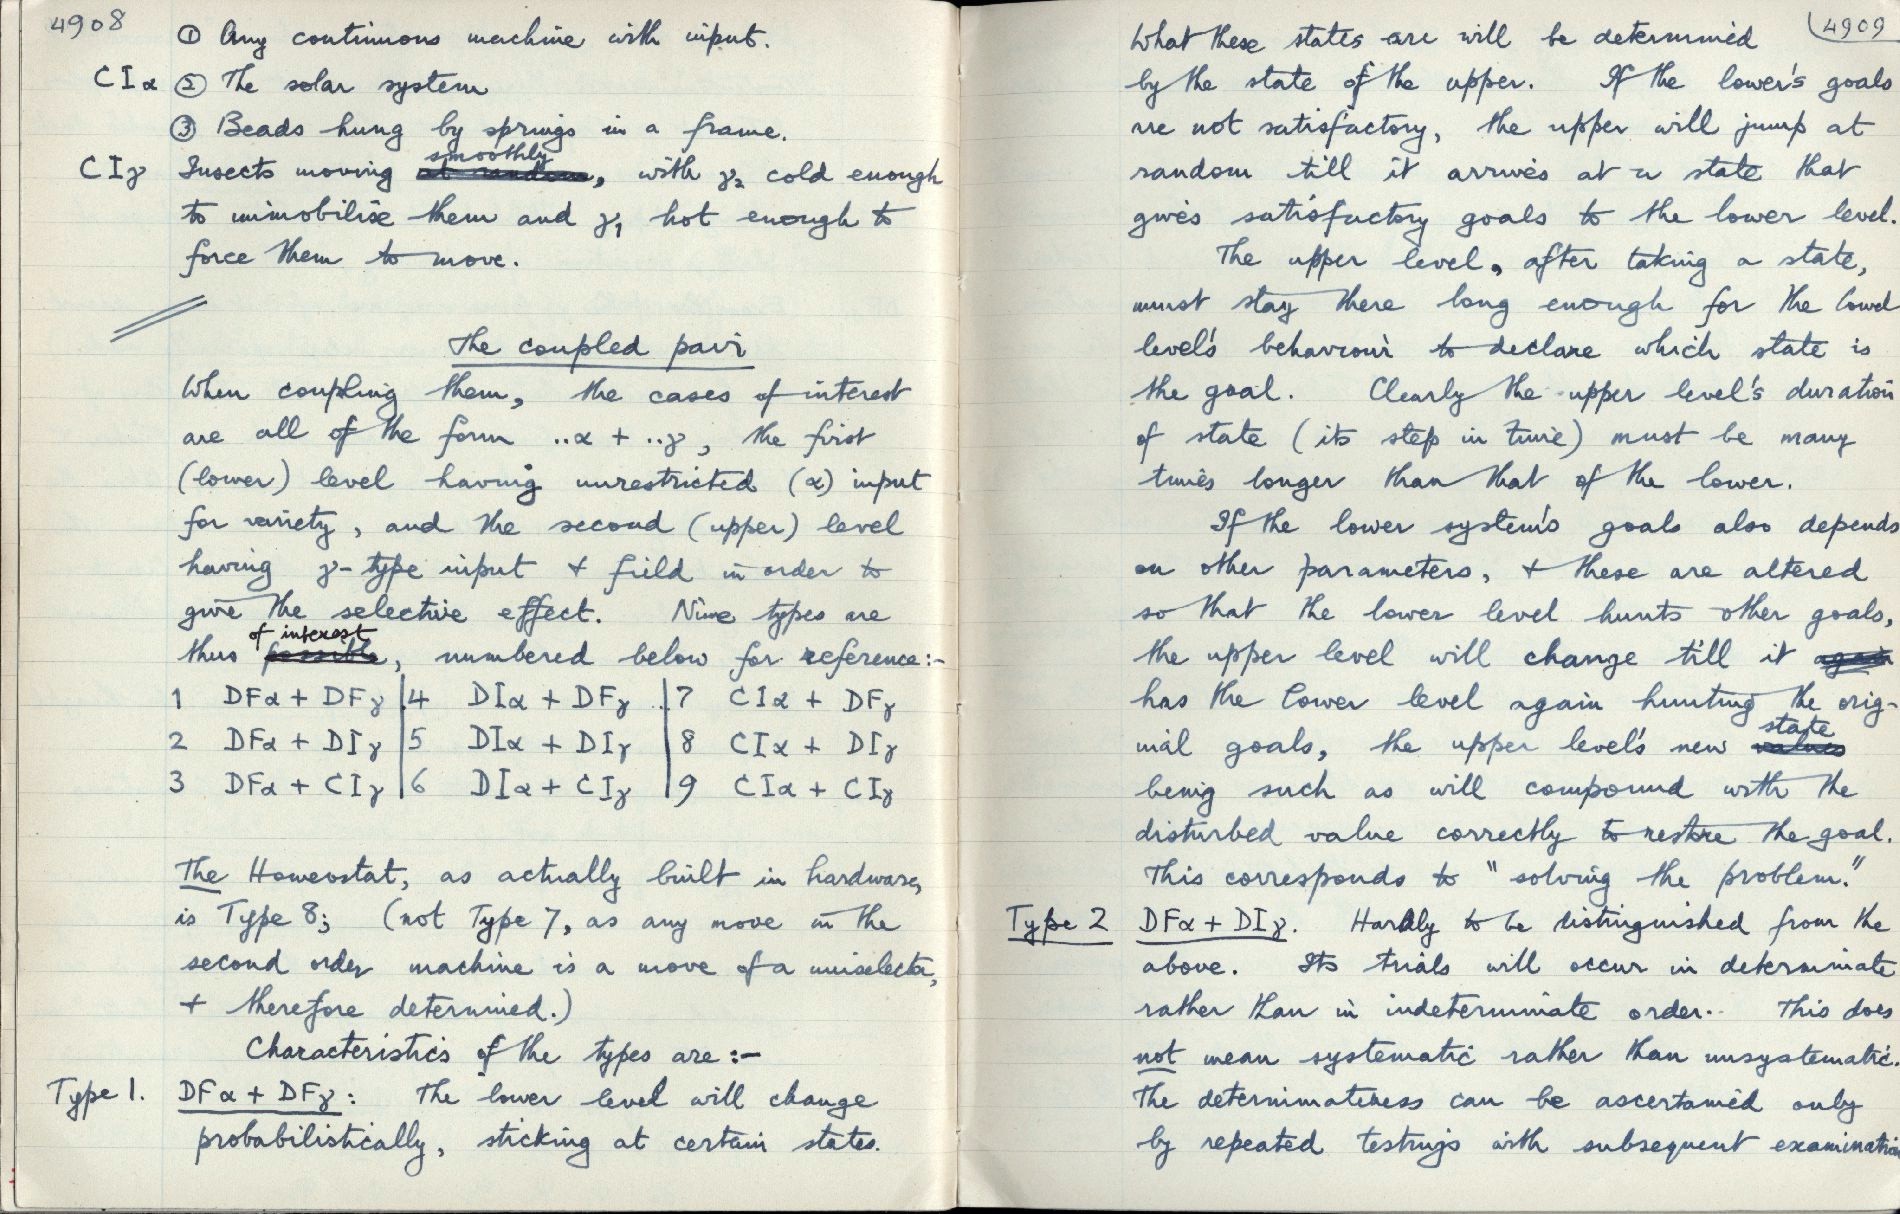 4908
① Any continuous machine with input.
CIα ② The solar system
③ Beads hung by springs in a frame.
smoothly
CIγ Insects moving at random, with γ₂ cold enough
to immobilise them and γ₁ hot enough to
force them to move.
The coupled pair
When coupling them, the cases of interest
are all of the form ..α + ..γ, the first
(lower) level having unrestricted (α) input
for variety, and the second (upper) level
having γ-type input + field in order to
give the selective effect. Nine types are
of interest
thus possible, numbered below for reference:-
1 DFα + DFγ | 4 DIα + DFγ | 7 CIα + DFγ
2 DFα + DIγ | 5 DIα + DIγ | 8 CIα + DIγ
3 DFα + CIγ | 6 DIα + CIγ | 9 CIα + CIγ
The Homeostat, as actually built in hardware,
is Type 8; (not Type 7, as any move in the
second order machine is a move of a uniselector,
+ therefore determined.)
Characteristics of the types are:-
Type 1. DFα + DFγ: The lower level will change
probabilistically, sticking at certain states.
4909
What these states are will be determined
by the state of the upper. If the lower's goals
are not satisfactory, the upper will jump at
random till it arrives at a state that
gives satisfactory goals to the lower level.
The upper level, after taking a state,
must stay there long enough for the lower
level's behaviour to declare which state is
the goal. Clearly the upper level's duration
of state (its step in time) must be many
times longer than that of the lower.
If the lower system's goals also depends
on other parameters, + these are altered
so that the lower level hunts other goals,
the upper level will change till it again
has the lower level again hunting the orig-
state
inal goals, the upper level's new values
being such as will compound with the
disturbed value correctly to restore the goal.
This corresponds to "solving the problem."
Type 2 DFα + DIγ. Hardly to be distinguished from the
above. Its trials will occur in determinate
rather than in indeterminate order. This does
not mean systematic rather than unsystematic.
The determinateness can be ascertained only
by repeated testings with subsequent examination